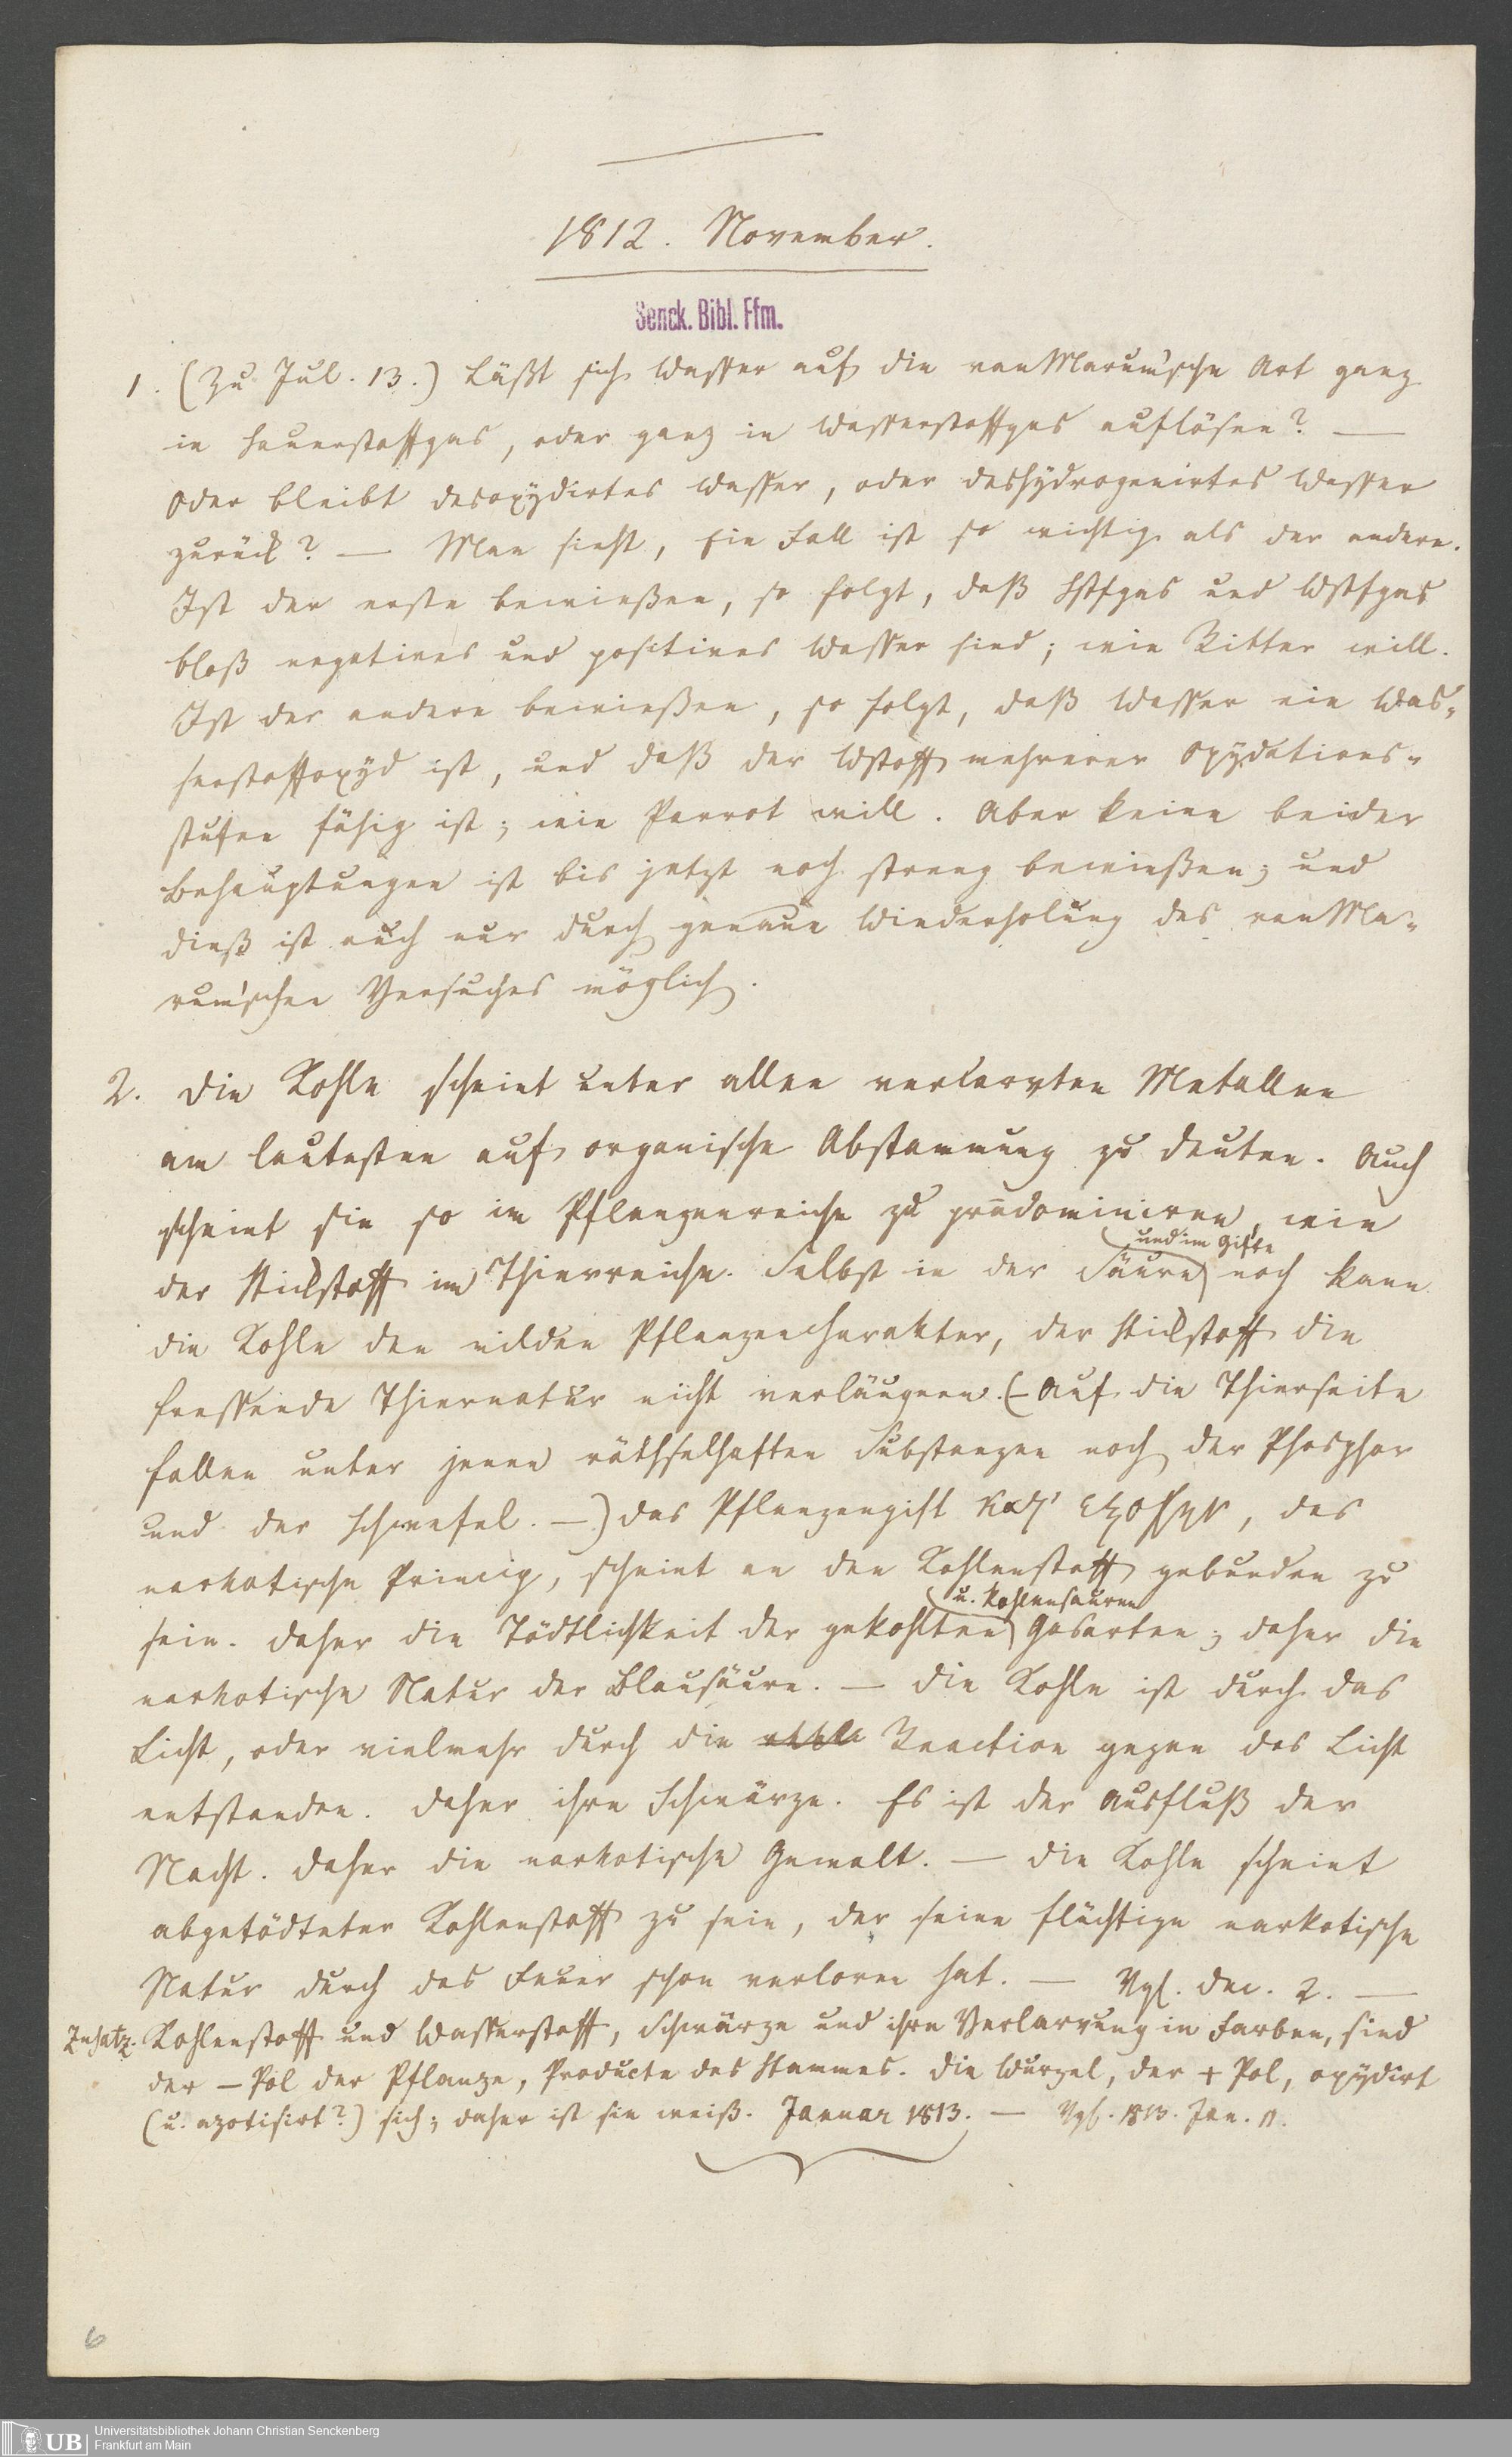 1812. November.
Senck. Bibl. Ffm.
1. (Zu Jul. 13.) Läßt sich Wasser auf die vanMarum'sche Art ganz
in Sauerstoffgas, oder ganz in Wasserstoffgas auflösen? —
Oder bleibt desoxÿdirtes Wasser, oder deshÿdrogenirtes Wasser
zurück? — Man sieht, Ein Fall ist so wichtig als der andere.
Ist der erste bewießen, so folgt, daß Sstfgas und Wstfgas
bloß negatives und positives Wasser sind; wie Ritter will.
Ist der andere bewießen, so folgt, daß Wasser ein Was-
serstoffoxÿd ist, und daß der Wstoff mehrerer Oxÿdations-
stufen fähig ist; wie Parrot will. Aber keine beider
Behauptungen ist bis jetzt noch streng bewießen; und
dieß ist auch nur durch genaue Wiederholung des vanMa-
rum'schen Versuches möglich.
2. Die Kohle scheint unter allen verlarvten Metallen
am lautesten auf organische Abstammung zu deuten. Auch
scheint sie so im Pflanzenreiche zu prädominiren, wie
und im Gifte
der Stickstoff im Thierreiche. Selbst in der Säure noch kann
die Kohle den milden Pflanzencharakter, der Stickstoff die
fressende Thiernatur nicht verläugnen. (— Auf die Thierseite
fallen unter jenen räthselhaften Substanzen noch der Phosphor
und der Schwefel. —) Das Pflanzengift κατ' εξοχην, das
narkotische Princip, scheint an den Kohlenstoff gebunden zu
u. kohlensauren
sein. Daher die Tödtlichkeit der gekohlten Gasarten; daher die
narkotische Natur der Blausäure. — Die Kohle ist durch das
Licht, oder vielmehr durch die Reaction gegen das Licht
entstanden. Daher ihre Schwärze. Es ist der Ausfluß der
Nacht. Daher die narkotische Gewalt. — Die Kohle scheint
abgetödteter Kohlenstoff zu sein, der seine flüchtige narkotische
Natur durch das Feuer schon verloren hat. — Vgl. Dec. 2. —
Zusatz. Kohlenstoff und Wasserstoff, Schwärze und ihre Verlarvung in Farben, sind
der – Pol der Pflanze, Producte des Stammes. Die Wurzel, der + Pol, oxÿdirt
(u. azotisirt?) sich; daher ist sie weiß. Januar 1813. — Vgl. 1813. Jan. 11.
6
UB
Universitätsbibliothek Johann Christian Senckenberg
Frankfurt am Main